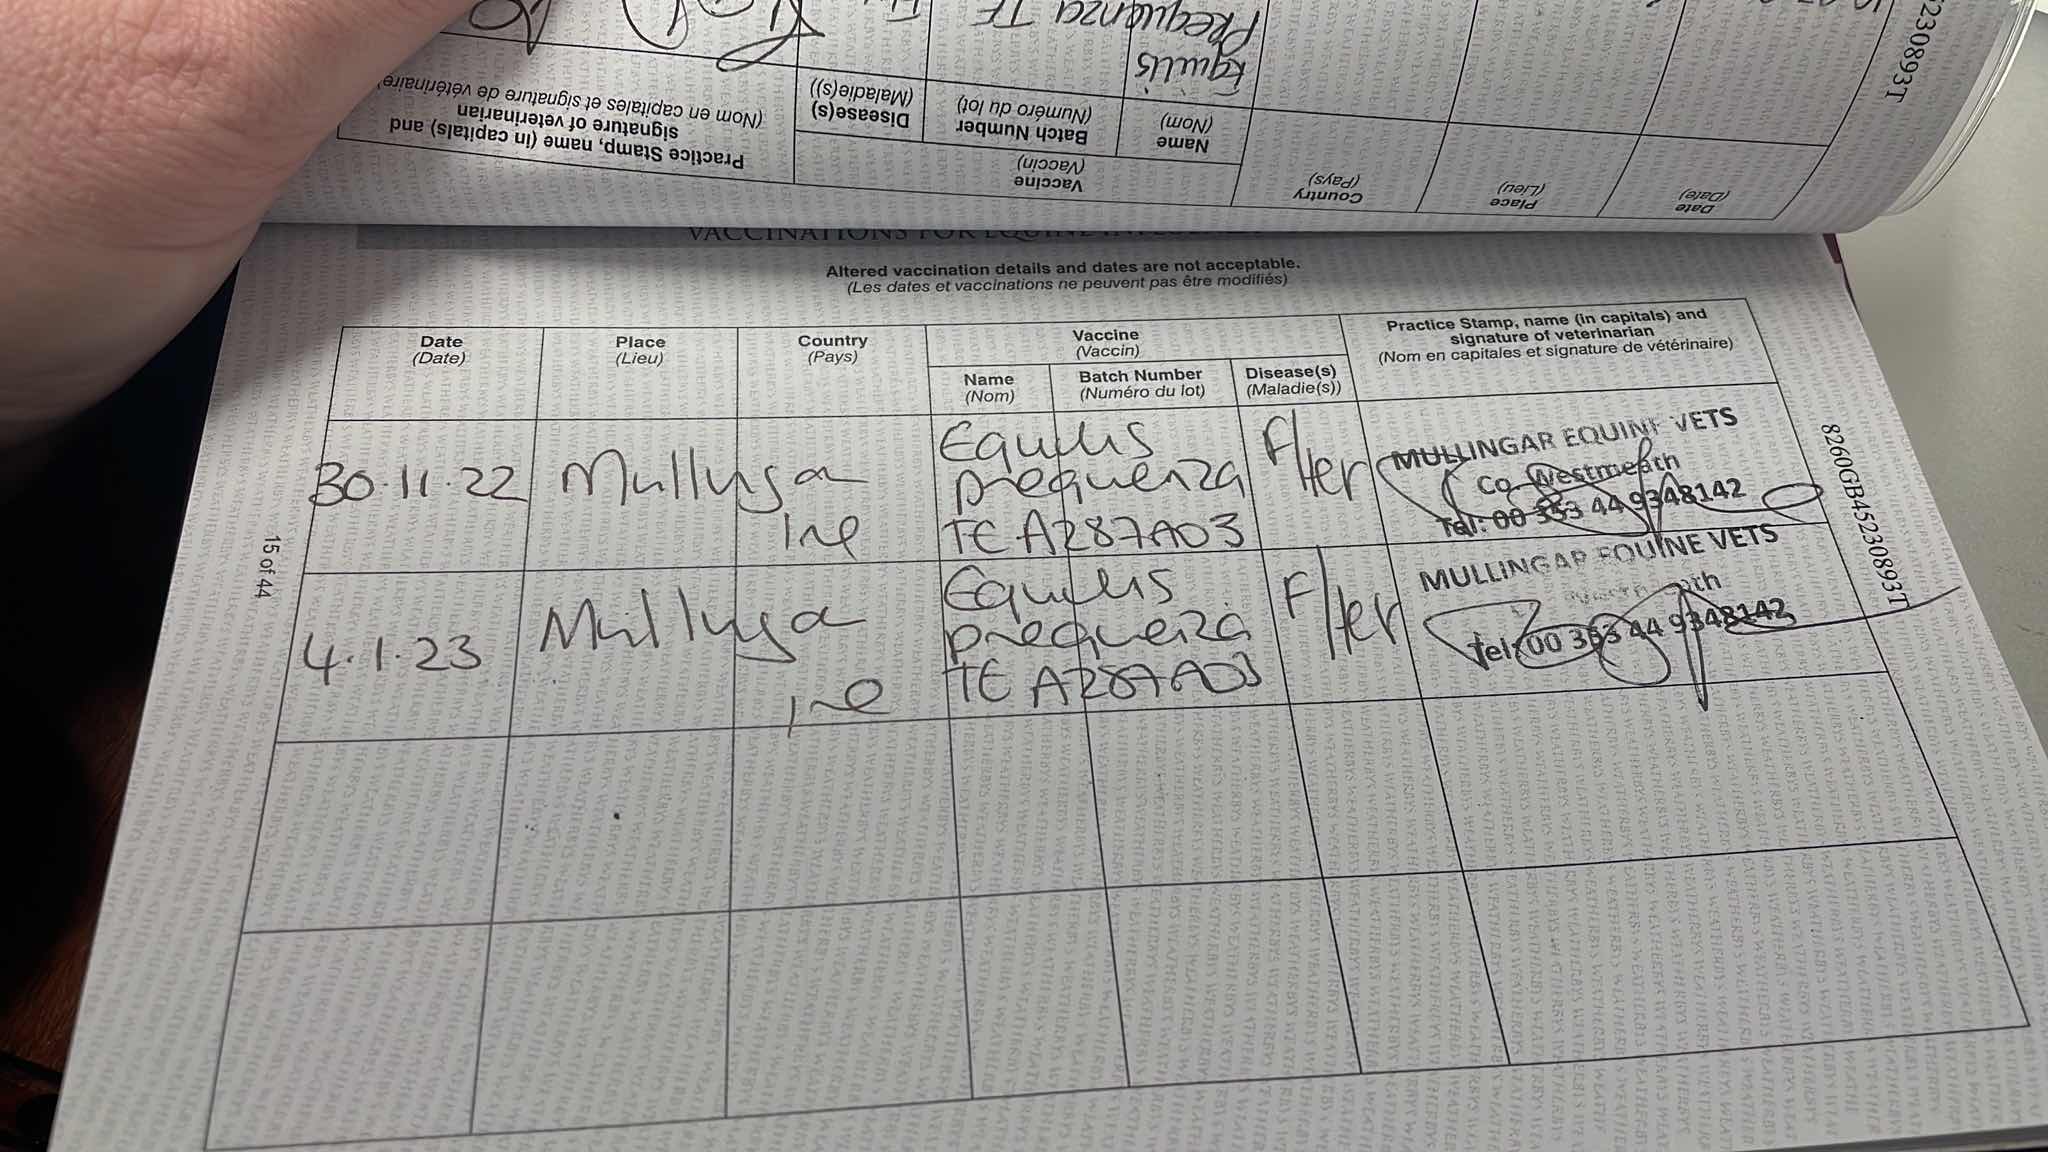 8260GB45230893T
Practice Stamp, name (in capitals) and
signature of veterinarian
(Nom en capitales et signature de vétérinaire)
Vaccine
(Vaccin)
Disease(s)
(Maladie(s))
Batch Number
(Numéro du lot)
Name
(Nom)
Country
(Pays)
Place
(Lieu)
Date
(Date)
Equilis
Prequenza TE
5230893T
VACCINATIONS FOR EQUINE
Altered vaccination details and dates are not acceptable.
(Les dates et vaccinations ne peuvent pas être modifiés)
Date
(Date)
Place
(Lieu)
Country
(Pays)
Vaccine
(Vaccin)
Name
(Nom)
Batch Number
(Numéro du lot)
Disease(s)
(Maladie(s))
Practice Stamp, name (in capitals) and
signature of veterinarian
(Nom en capitales et signature de vétérinaire)
30.11.22
Mullingar
Ire
Equilis
prequenza
TE A287A03
F/Tet
MULLINGAR EQUINE VETS
Co Westmeath
Tel: 00 353 44 9348142
4.1.23
Mullingar
Ire
Equilis
prequenza
TE A287A03
F/Tet
MULLINGAR EQUINE VETS
Tel: 00 353 44 9348142
15 of 44